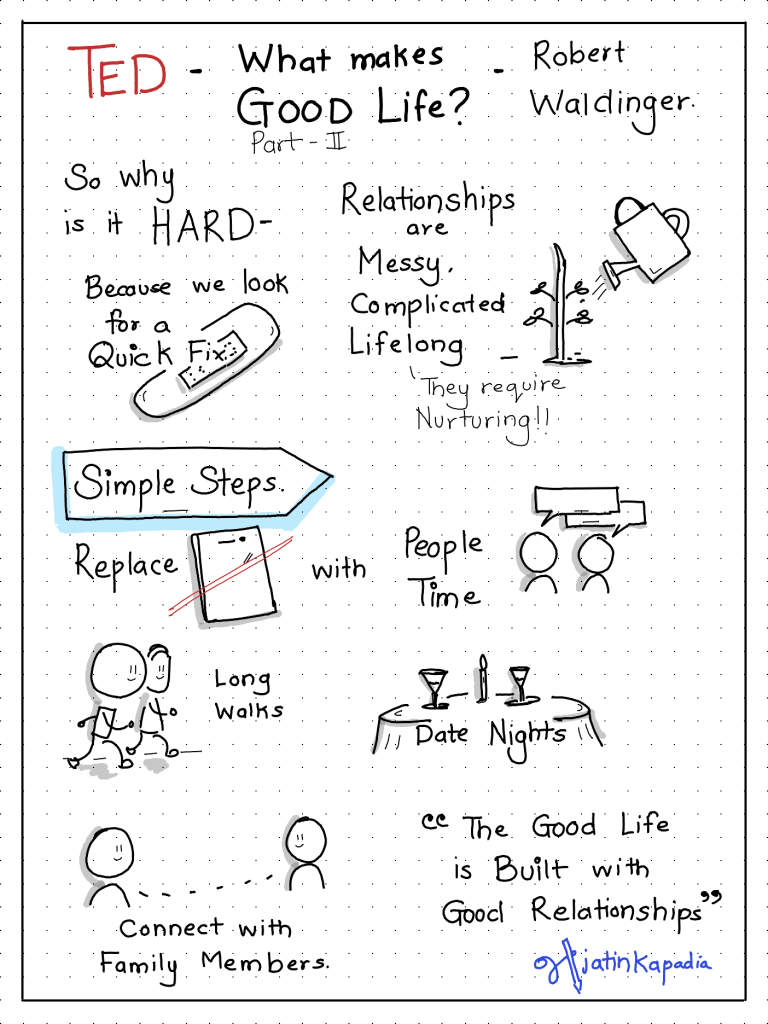 TED - What makes - Robert
GOOD Life? Waldinger.
Part - II
So why
is it HARD-
Because we look
for a
Quick Fix
Relationships
are
Messy,
Complicated
Lifelong -
'They require
Nurturing!!
Simple Steps.
Replace with People
Time
Long
Walks
Date Nights
Connect with
Family Members.
“The Good Life
is Built with
Good Relationships”
jatinkapadia